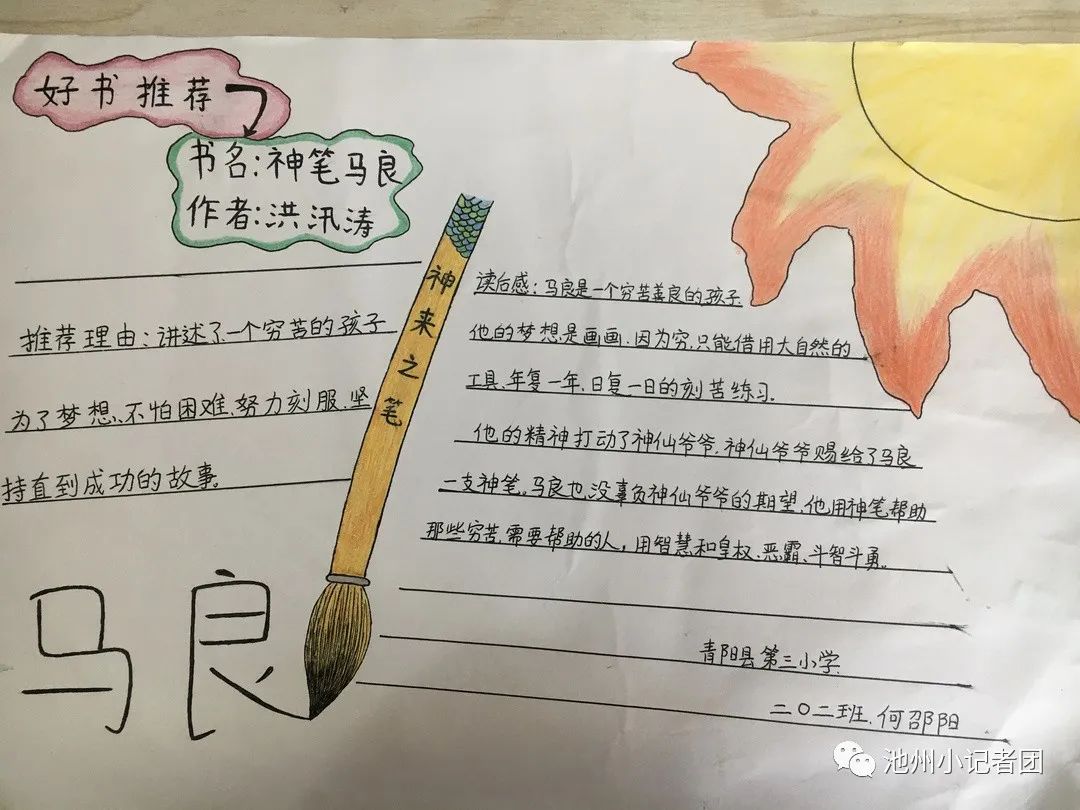 好书推荐
书名:神笔马良
作者:洪汛涛
推荐理由:讲述了一个穷苦的孩子
为了梦想、不怕困难、努力刻服、坚
持直到成功的故事。
神来之笔
马良
读后感:马良是一个穷苦善良的孩子
他的梦想是画画、因为穷,只能借用大自然的
工具、年复一年、日复一日的刻苦练习。
他的精神打动了神仙爷爷,神仙爷爷赐给了马良
一支神笔。马良也没辜负神仙爷爷的期望,他用神笔帮助
那些穷苦、需要帮助的人,用智慧和皇权、恶霸、斗智斗勇。
青阳县第三小学
二〇二班、何邵阳
池州小记者团